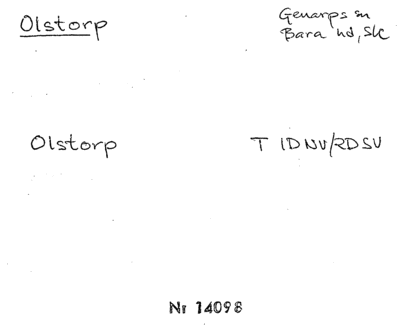 Olstorp
Genarps sn
Bara hd, Sk
Olstorp
T IDNV/RDSV
Nr 14098